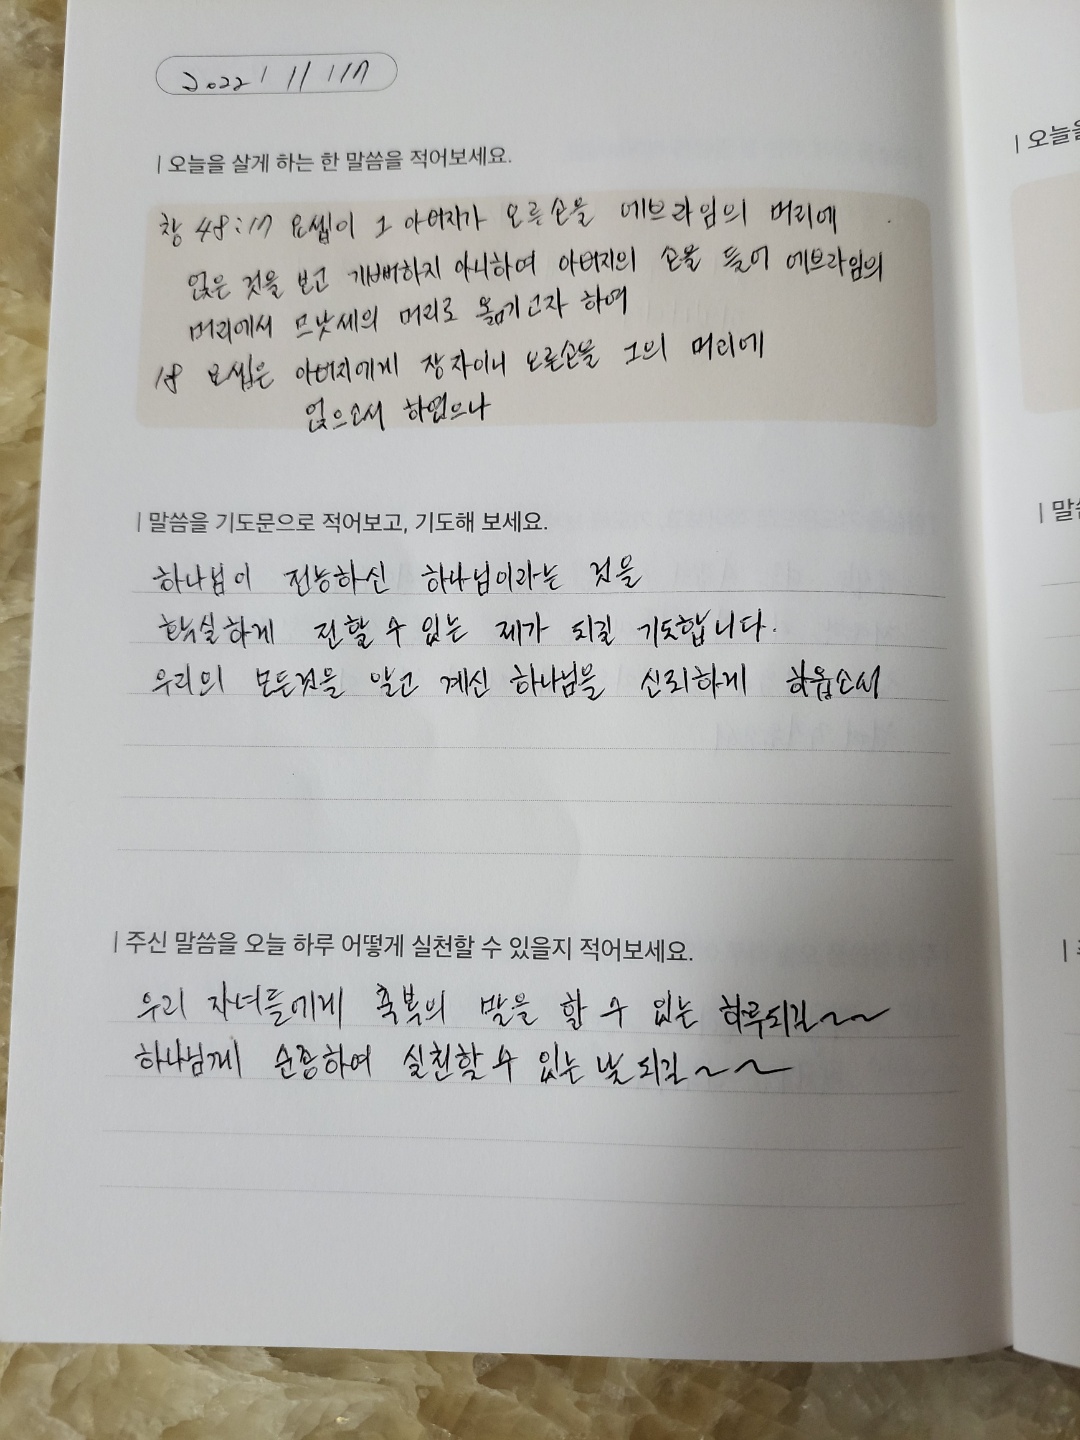 2022 / 11 / 17
| 오늘을 살게 하는 한 말씀을 적어보세요.
창 48:17 요셉이 그 아버지가 오른손을 에브라임의 머리에
얹은 것을 보고 기뻐하지 아니하여 아버지의 손을 들어 에브라임의
머리에서 므낫세의 머리로 옮기고자 하여
18 요셉은 아버지에게 장자이니 오른손을 그의 머리에
얹으소서 하였으나
| 말씀을 기도문으로 적어보고, 기도해 보세요.
하나님이 전능하신 하나님이라는 것을
확실하게 전할 수 있는 제가 되길 기도합니다.
우리의 모든것을 알고 계신 하나님을 신뢰하게 하옵소서
| 주신 말씀을 오늘 하루 어떻게 실천할 수 있을지 적어보세요.
우리 자녀들에게 축복의 말을 할 수 있는 하루되길~~
하나님께 순종하여 실천할 수 있는 날 되길~~
| 오늘을
| 말씀
|